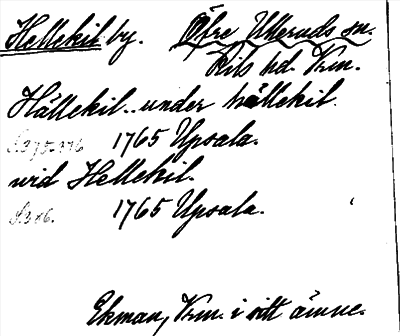 Hellekil by. Öfre Ulleruds sn.
Kils hd. Vrm.
Hällekil.. under hällekil.
S. 375-376 1765 Upsala.
vid Hellekil.
S. 386. 1765 Upsala.
Ekman, Vrm. i sitt ämne.